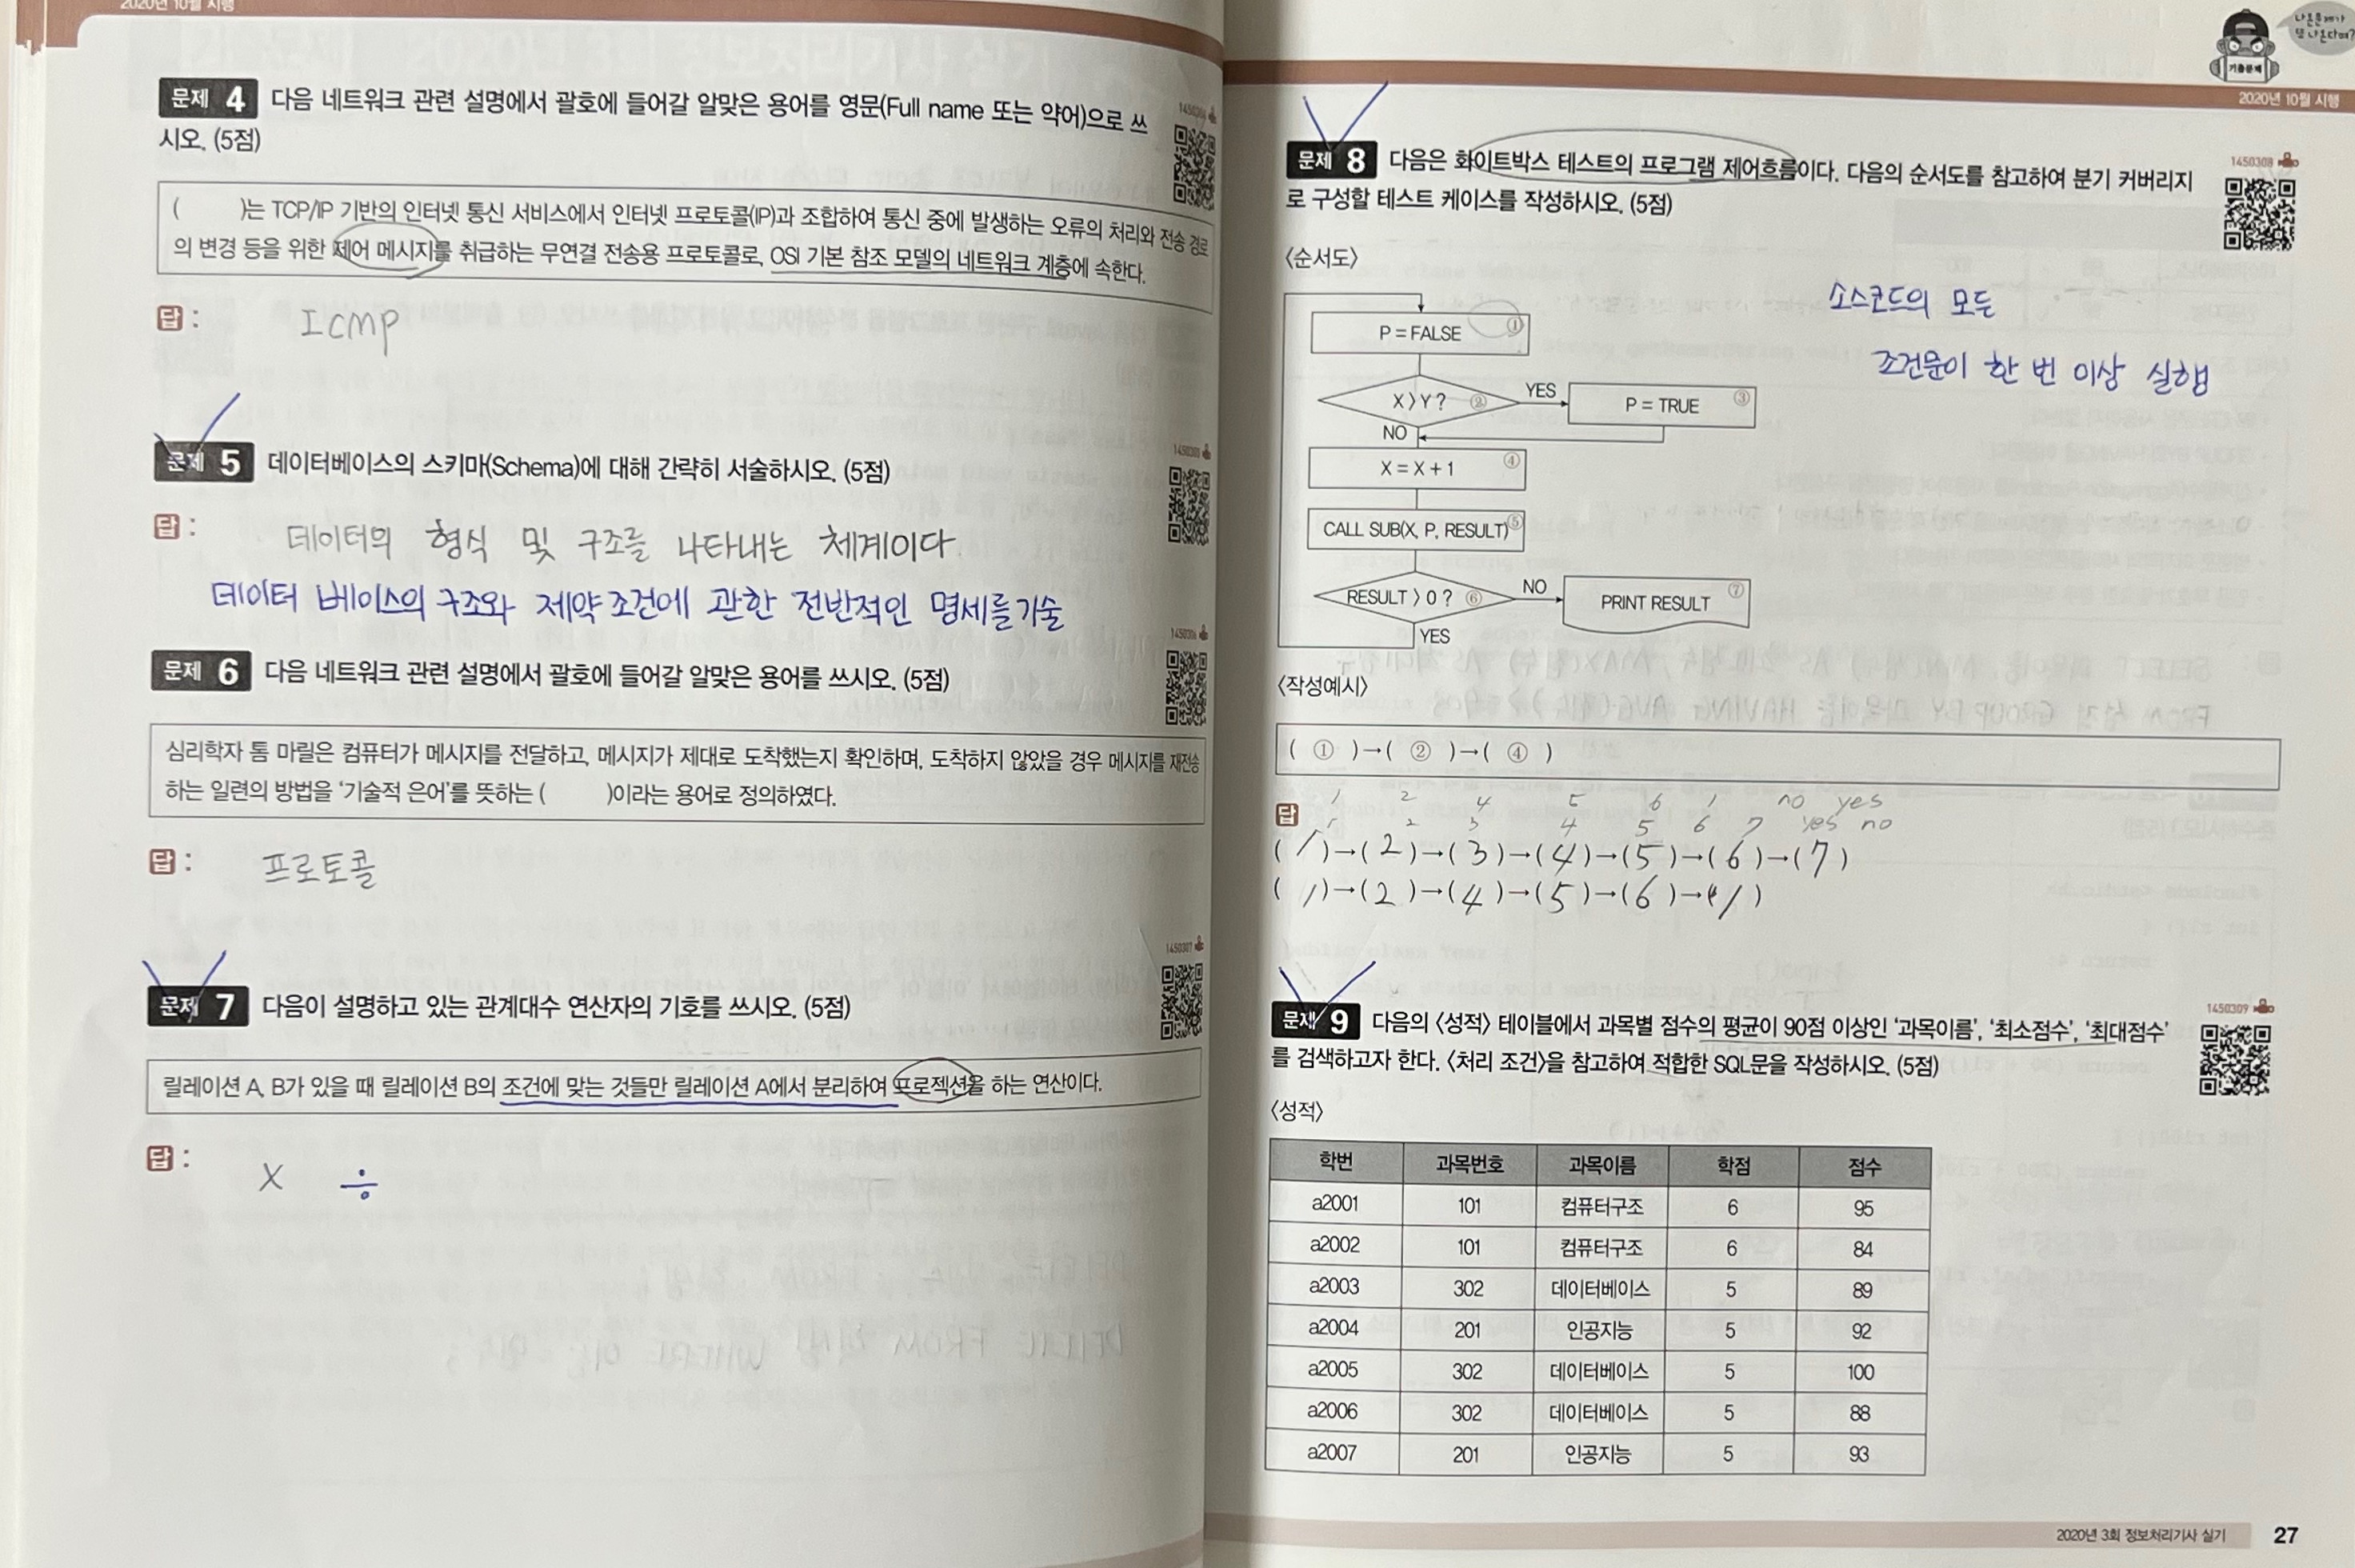 2020년 10월 시행
문제 4 다음 네트워크 관련 설명에서 괄호에 들어갈 알맞은 용어를 영문(Full name 또는 약어)으로 쓰
시오. (5점)
1450304
( )는 TCP/IP 기반의 인터넷 통신 서비스에서 인터넷 프로토콜(IP)과 조합하여 통신 중에 발생하는 오류의 처리와 전송 경로
의 변경 등을 위한 제어 메시지를 취급하는 무연결 전송용 프로토콜로, OSI 기본 참조 모델의 네트워크 계층에 속한다.
답 : ICMP
문제 5 데이터베이스의 스키마(Schema)에 대해 간략히 서술하시오. (5점)
1450305
답 : 데이터의 형식 및 구조를 나타내는 체계이다
데이터 베이스의 구조와 제약조건에 관한 전반적인 명세를 기술
1450306
문제 6 다음 네트워크 관련 설명에서 괄호에 들어갈 알맞은 용어를 쓰시오. (5점)
심리학자 톰 마릴은 컴퓨터가 메시지를 전달하고, 메시지가 제대로 도착했는지 확인하며, 도착하지 않았을 경우 메시지를 재전송
하는 일련의 방법을 ‘기술적 은어’를 뜻하는 ( )이라는 용어로 정의하였다.
답 : 프로토콜
1450307
문제 7 다음이 설명하고 있는 관계대수 연산자의 기호를 쓰시오. (5점)
릴레이션 A, B가 있을 때 릴레이션 B의 조건에 맞는 것들만 릴레이션 A에서 분리하여 프로젝션을 하는 연산이다.
답 : X ÷
나온문제가
또 나온다며?
기출문제
2020년 10월 시행
문제 8 다음은 화이트박스 테스트의 프로그램 제어흐름이다. 다음의 순서도를 참고하여 분기 커버리지
로 구성할 테스트 케이스를 작성하시오. (5점)
1450308
〈순서도〉
소스코드의 모든
조건문이 한 번 이상 실행
P = FALSE ①
X > Y ? ② YES P = TRUE ③
NO
X = X + 1 ④
CALL SUB(X, P, RESULT) ⑤
RESULT > 0 ? ⑥ NO PRINT RESULT ⑦
YES
〈작성예시〉
( ① )→( ② )→( ④ )
1 2 4 5 6 1 no yes
답 1 2 3 4 5 6 7 yes no
( 1 )→( 2 )→( 3 )→( 4 )→( 5 )→( 6 )→( 7 )
( 1 )→( 2 )→( 4 )→( 5 )→( 6 )→( 1 )
문제 9 다음의 〈성적〉 테이블에서 과목별 점수의 평균이 90점 이상인 ‘과목이름’, ‘최소점수’, ‘최대점수’
를 검색하고자 한다. 〈처리 조건〉을 참고하여 적합한 SQL문을 작성하시오. (5점)
1450309
〈성적〉
학번 과목번호 과목이름 학점 점수
a2001 101 컴퓨터구조 6 95
a2002 101 컴퓨터구조 6 84
a2003 302 데이터베이스 5 89
a2004 201 인공지능 5 92
a2005 302 데이터베이스 5 100
a2006 302 데이터베이스 5 88
a2007 201 인공지능 5 93
2020년 3회 정보처리기사 실기 27